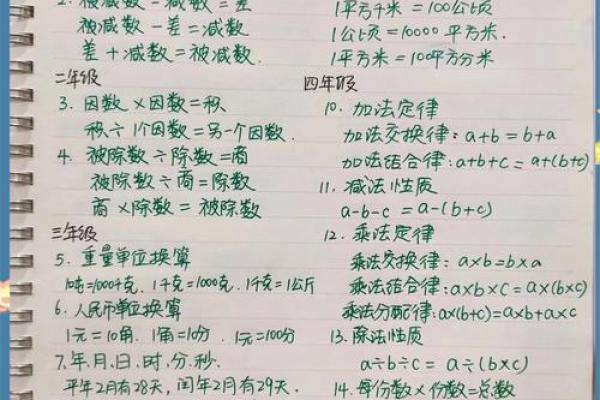 2. 被减数 - 减数 = 差
被减数 - 差 = 减数
差 + 减数 = 被减数
二年级
3. 因数 × 因数 = 积
积 ÷ 1个因数 = 另一个因数.
4. 被除数 ÷ 除数 = 商
被除数 ÷ 商 = 除数
商 × 除数 = 被除数
三年级
5. 重量单位换算
1吨=1000千克, 1千克=1000克, 1千克=1公斤
6. 人民币单位换算
1元=10角, 1角=10分, 1元=100分
7. 年.月.日.时.分.秒.
平年2月有28天, 闰年2月有29天.
1平方千米 = 100公顷
1公顷 = 10000平方米.
1平方米 = 100平方分米
四年级
10. 加法定律
加法交换律: a+b = b+a
加法结合律: a+b+c = a+(b+c)
11. 减法性质
a-b-c = a-(b+c)
12. 乘法定律
乘法交换律: a×b=b×a
乘法结合律: a×b×c = a×(b×c)
乘法分配律: a×(b+c)=a×b+a×c
13. 除法性质
a÷b÷c = a÷(b×c)
14. 每份数×份数=总数